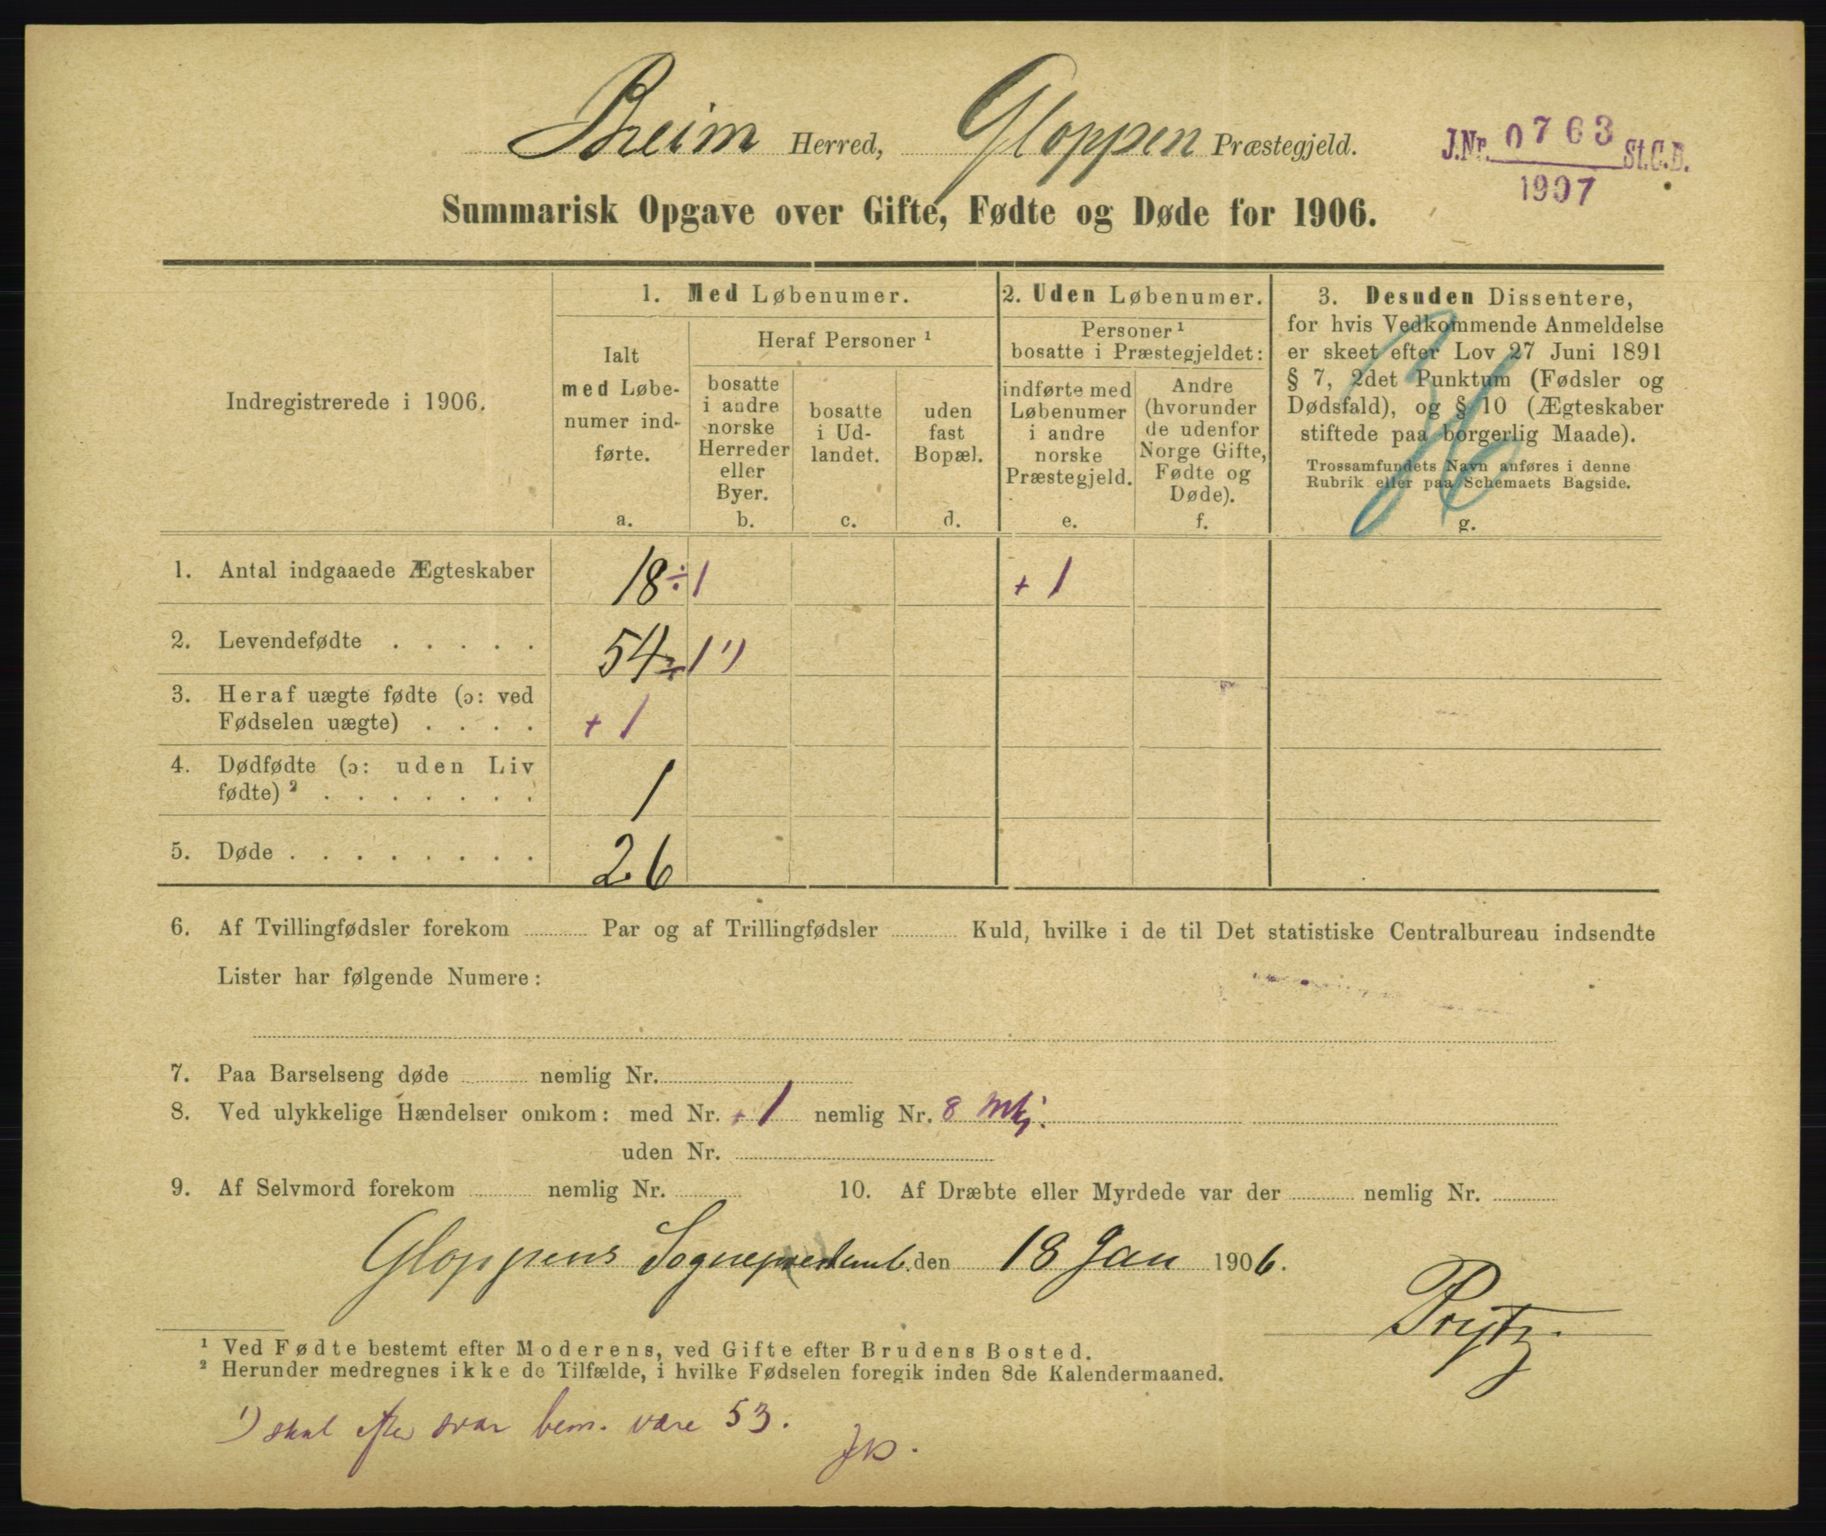 Breim Herred, Gloppen Præstegjeld.
J.Nr. 0763 St.C.B.
1907
Summarisk Opgave over Gifte, Fødte og Døde for 1906.
Indregistrerede i 1906.
1. Med Løbenumer.
Ialt
med Løbe-
numer ind-
førte.
a.
Heraf Personer ¹
bosatte
i andre
norske
Herreder
eller
Byer.
b.
bosatte
i Ud-
landet.
c.
uden
fast
Bopæl.
d.
2. Uden Løbenumer.
Personer ¹
bosatte i Præstegjeldet:
indførte med
Løbenumer
i andre
norske
Præstegjeld.
e.
Andre
(hvorunder
de udenfor
Norge Gifte,
Fødte og
Døde).
f.
3. Desuden Dissentere,
for hvis Vedkommende Anmeldelse
er skeet efter Lov 27 Juni 1891
§ 7, 2det Punktum (Fødsler og
Dødsfald), og § 10 (Ægteskaber
stiftede paa borgerlig Maade).
Trossamfundets Navn anføres i denne
Rubrik eller paa Schemaets Bagside.
g.
1. Antal indgaaede Ægteskaber 18 ÷ 1 + 1
2. Levendefødte . . . . . 54 ÷ 1 ¹)
3. Heraf uægte fødte (ɔ: ved
Fødselen uægte) . . . . + 1
4. Dødfødte (ɔ: uden Liv
fødte) ² . . . . . . . 1
5. Døde . . . . . . . . 26
6. Af Tvillingfødsler forekom Par og af Trillingfødsler Kuld, hvilke i de til Det statistiske Centralbureau indsendte
Lister har følgende Numere:
7. Paa Barselseng døde nemlig Nr.
8. Ved ulykkelige Hændelser omkom: med Nr. + 1 nemlig Nr. 8 Mkj.
uden Nr.
9. Af Selvmord forekom nemlig Nr. 10. Af Dræbte eller Myrdede var der nemlig Nr.
Gloppens Sogneprestemb. den 18 Jan 1906.
Prytz.
¹ Ved Fødte bestemt efter Moderens, ved Gifte efter Brudens Bosted.
² Herunder medregnes ikke de Tilfælde, i hvilke Fødselen foregik inden 8de Kalendermaaned.
¹) skal efter svar bem. være 53.